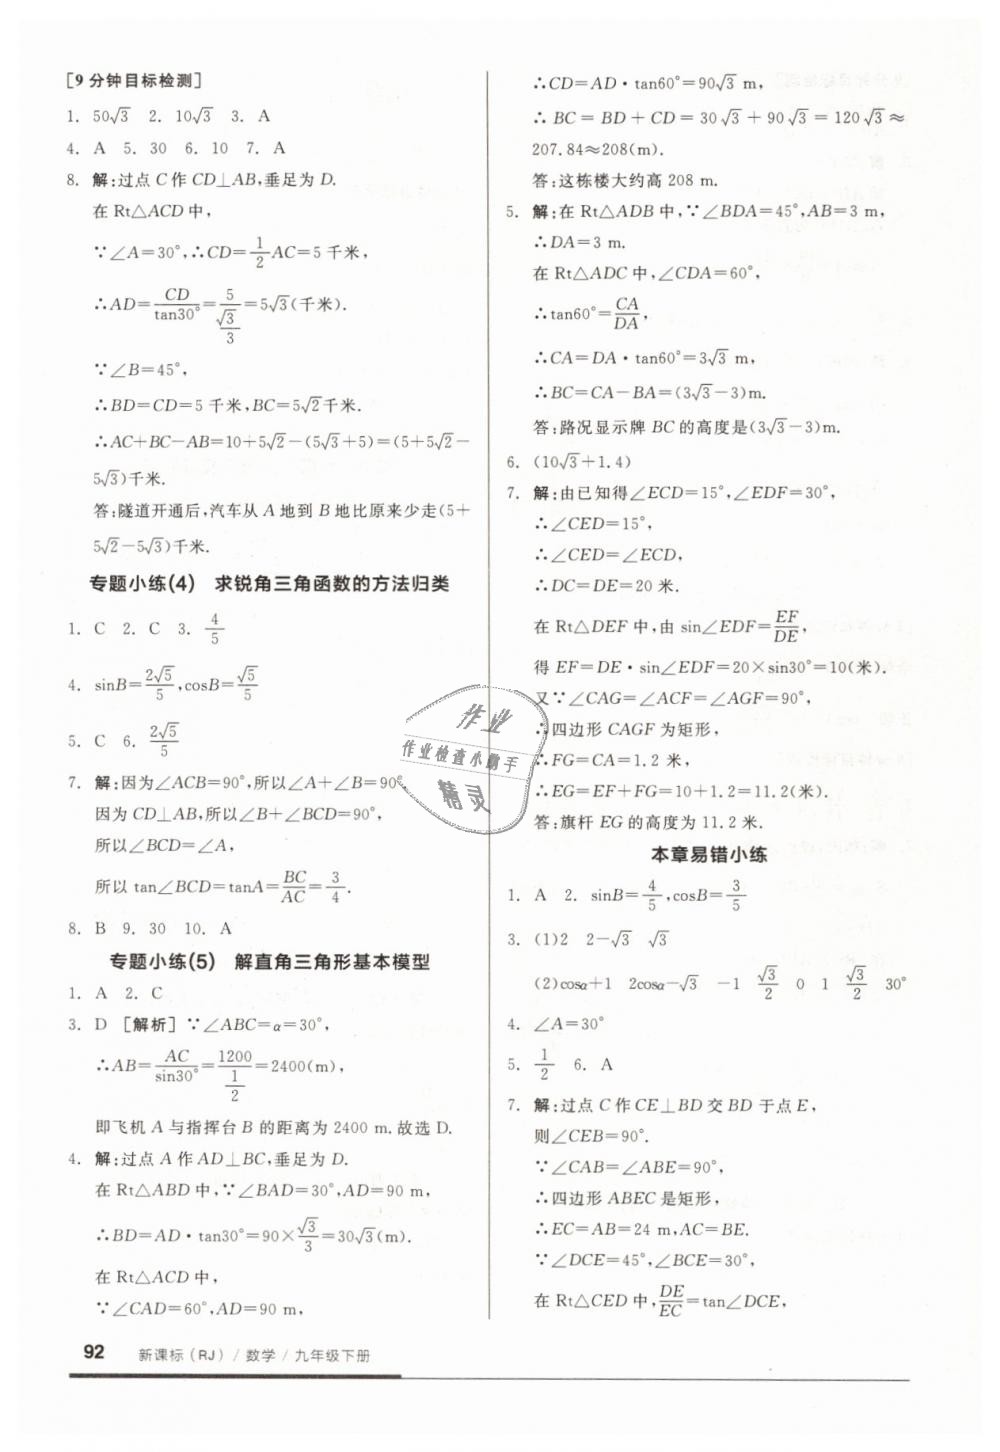 [9 分钟目标检测]
1. 50√3  2. 10√3  3. A
4. A  5. 30  6. 10  7. A
8. 解:过点 C 作 CD⊥AB,垂足为 D.
在 Rt△ACD 中,
∵∠A=30°,∴CD=1/2 AC=5 千米,
∴AD=CD/tan30°=5/(√3/3)=5√3(千米).
∵∠B=45°,
∴BD=CD=5 千米,BC=5√2千米.
∴AC+BC−AB=10+5√2−(5√3+5)=(5+5√2−
5√3)千米.
答:隧道开通后,汽车从 A 地到 B 地比原来少走(5+
5√2−5√3)千米.
专题小练(4) 求锐角三角函数的方法归类
1. C  2. C  3. 4/5
4. sinB=2√5/5,cosB=√5/5
5. C  6. 2√5/5
7. 解:因为∠ACB=90°,所以∠A+∠B=90°.
因为 CD⊥AB,所以∠B+∠BCD=90°,
所以∠BCD=∠A,
所以 tan∠BCD=tanA=BC/AC=3/4.
8. B  9. 30  10. A
专题小练(5) 解直角三角形基本模型
1. A  2. C
3. D [解析] ∵∠ABC=α=30°,
∴AB=AC/sin30°=1200/(1/2)=2400(m),
即飞机 A 与指挥台 B 的距离为 2400 m.故选 D.
4. 解:过点 A 作 AD⊥BC,垂足为 D.
在 Rt△ABD 中,∵∠BAD=30°,AD=90 m,
∴BD=AD·tan30°=90×√3/3=30√3(m).
在 Rt△ACD 中,
∵∠CAD=60°,AD=90 m,
∴CD=AD·tan60°=90√3 m,
∴BC=BD+CD=30√3+90√3=120√3≈
207.84≈208(m).
答:这栋楼大约高 208 m.
5. 解:在 Rt△ADB 中,∵∠BDA=45°,AB=3 m,
∴DA=3 m.
在 Rt△ADC 中,∠CDA=60°,
∴tan60°=CA/DA,
∴CA=DA·tan60°=3√3 m,
∴BC=CA−BA=(3√3−3)m.
答:路况显示牌 BC 的高度是(3√3−3)m.
6. (10√3+1.4)
7. 解:由已知得∠ECD=15°,∠EDF=30°,
∴∠CED=15°,
∴∠CED=∠ECD,
∴DC=DE=20 米.
在 Rt△DEF 中,由 sin∠EDF=EF/DE,
得 EF=DE·sin∠EDF=20×sin30°=10(米).
又∵∠CAG=∠ACF=∠AGF=90°,
∴四边形 CAGF 为矩形,
∴FG=CA=1.2 米,
∴EG=EF+FG=10+1.2=11.2(米).
答:旗杆 EG 的高度为 11.2 米.
本章易错小练
1. A  2. sinB=4/5,cosB=3/5
3. (1)2  2−√3  √3
(2)cosα+1  2cosα−√3  −1  √3/2  0  1  √3/2  30°
4. ∠A=30°
5. 1/2  6. A
7. 解:过点 C 作 CE⊥BD 交 BD 于点 E,
则∠CEB=90°.
∵∠CAB=∠ABE=90°,
∴四边形 ABEC 是矩形,
∴EC=AB=24 m,AC=BE.
∵∠DCE=45°,∠BCE=30°,
在 Rt△CED 中,DE/EC=tan∠DCE,
作业
作业检查小助手
精灵
92 新课标(RJ)/数学/九年级下册